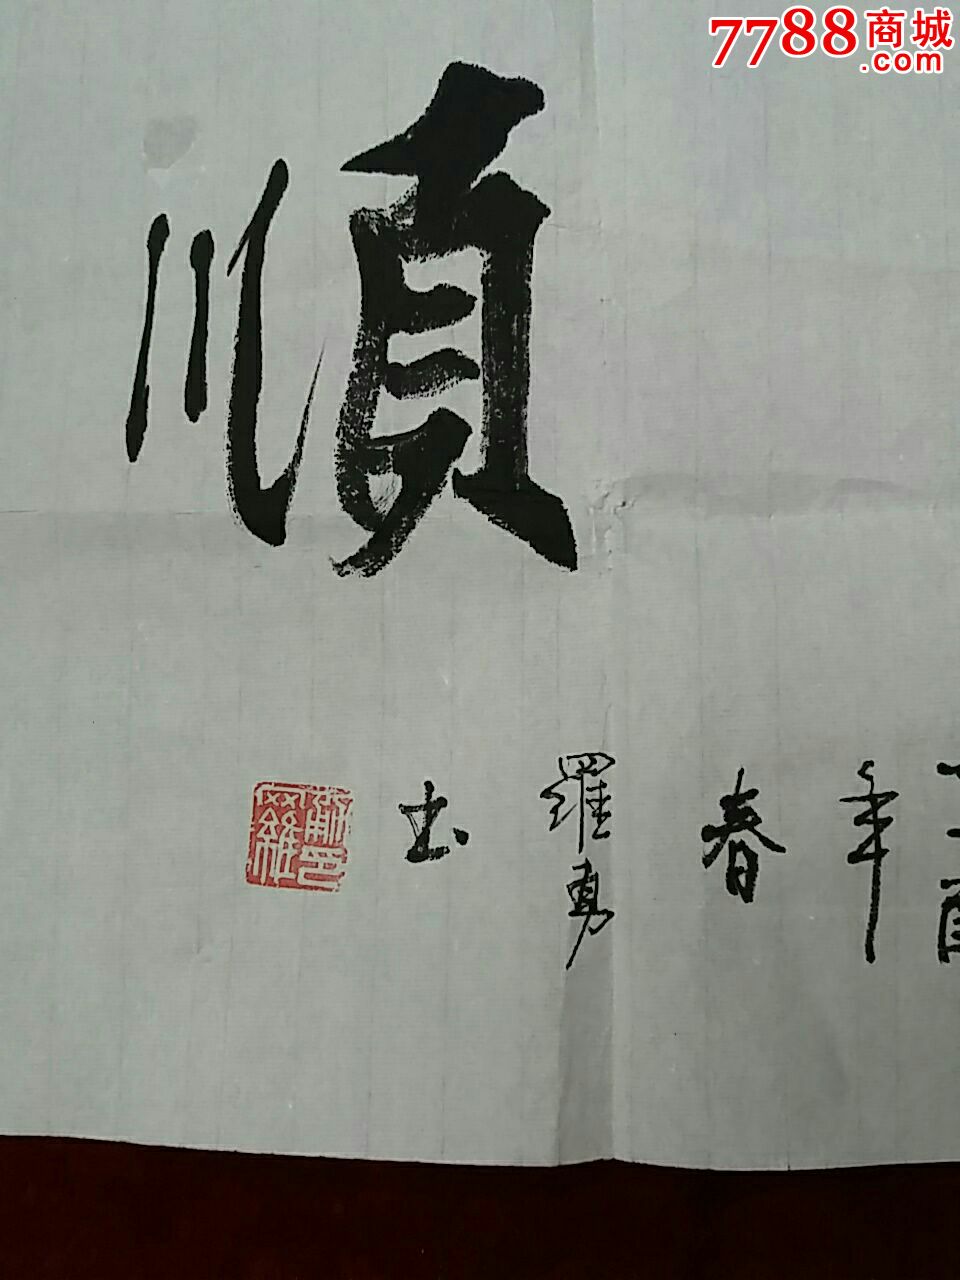 7788商城
.com
順
酉年春羅勇书